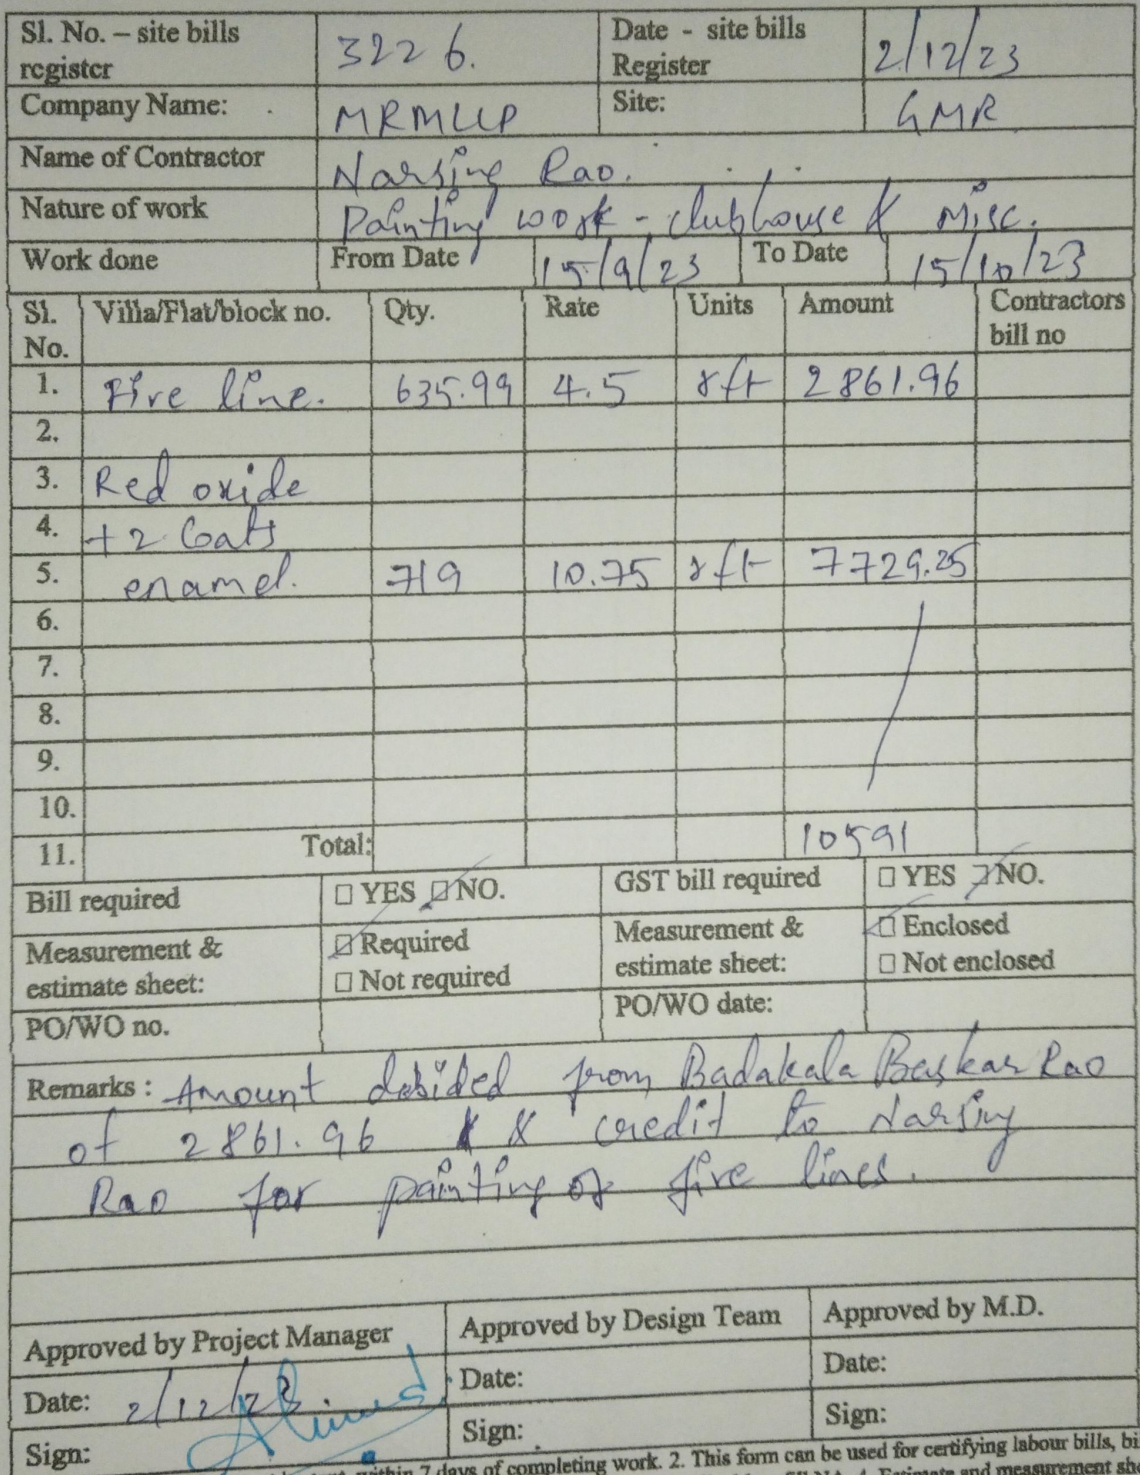 Sl. No. – site bills register 3226. Date - site bills Register 2/12/23
Company Name: MRMLLP Site: GMR
Name of Contractor Narsing Rao.
Nature of work Painting work - clubhouse & Misc.
Work done From Date 15/9/23 To Date 15/10/23
Sl. No. Villa/Flat/block no. Qty. Rate Units Amount Contractors bill no
1. Fire line. 635.99 4.5 rft 2861.96
2.
3. Red oxide
4. +2 Coats
5. enamel. 719 10.75 rft 7729.25
6.
7.
8.
9.
10.
11. Total: 10591
Bill required ☐ YES ☑ NO. GST bill required ☐ YES ☑ NO.
Measurement & estimate sheet: ☑ Required ☐ Not required Measurement & estimate sheet: ☑ Enclosed ☐ Not enclosed
PO/WO no. PO/WO date:
Remarks : Amount debided from Badakala Baskar Rao
of 2861.96 & credit to Narsing
Rao for painting of fire lines.
Approved by Project Manager Approved by Design Team Approved by M.D.
Date: 2/12/23 Date: Date:
Sign: Sign: Sign:
within 7 days of completing work. 2. This form can be used for certifying labour bills,
4. Estimate and measurement